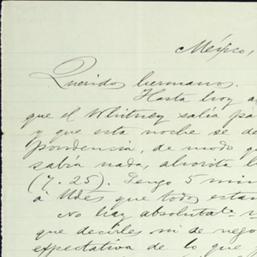 Méjico,
Querido hermano.
Hasta hoy a
que el Whitney salia pa
y que esta noche se de
pondencia, de modo qu
sabia nada, ahorita l
(7.25). Tengo 5 min
a Udes que todos estan
No hay absolutate n
que decirles ni de nego
expectativa de lo que